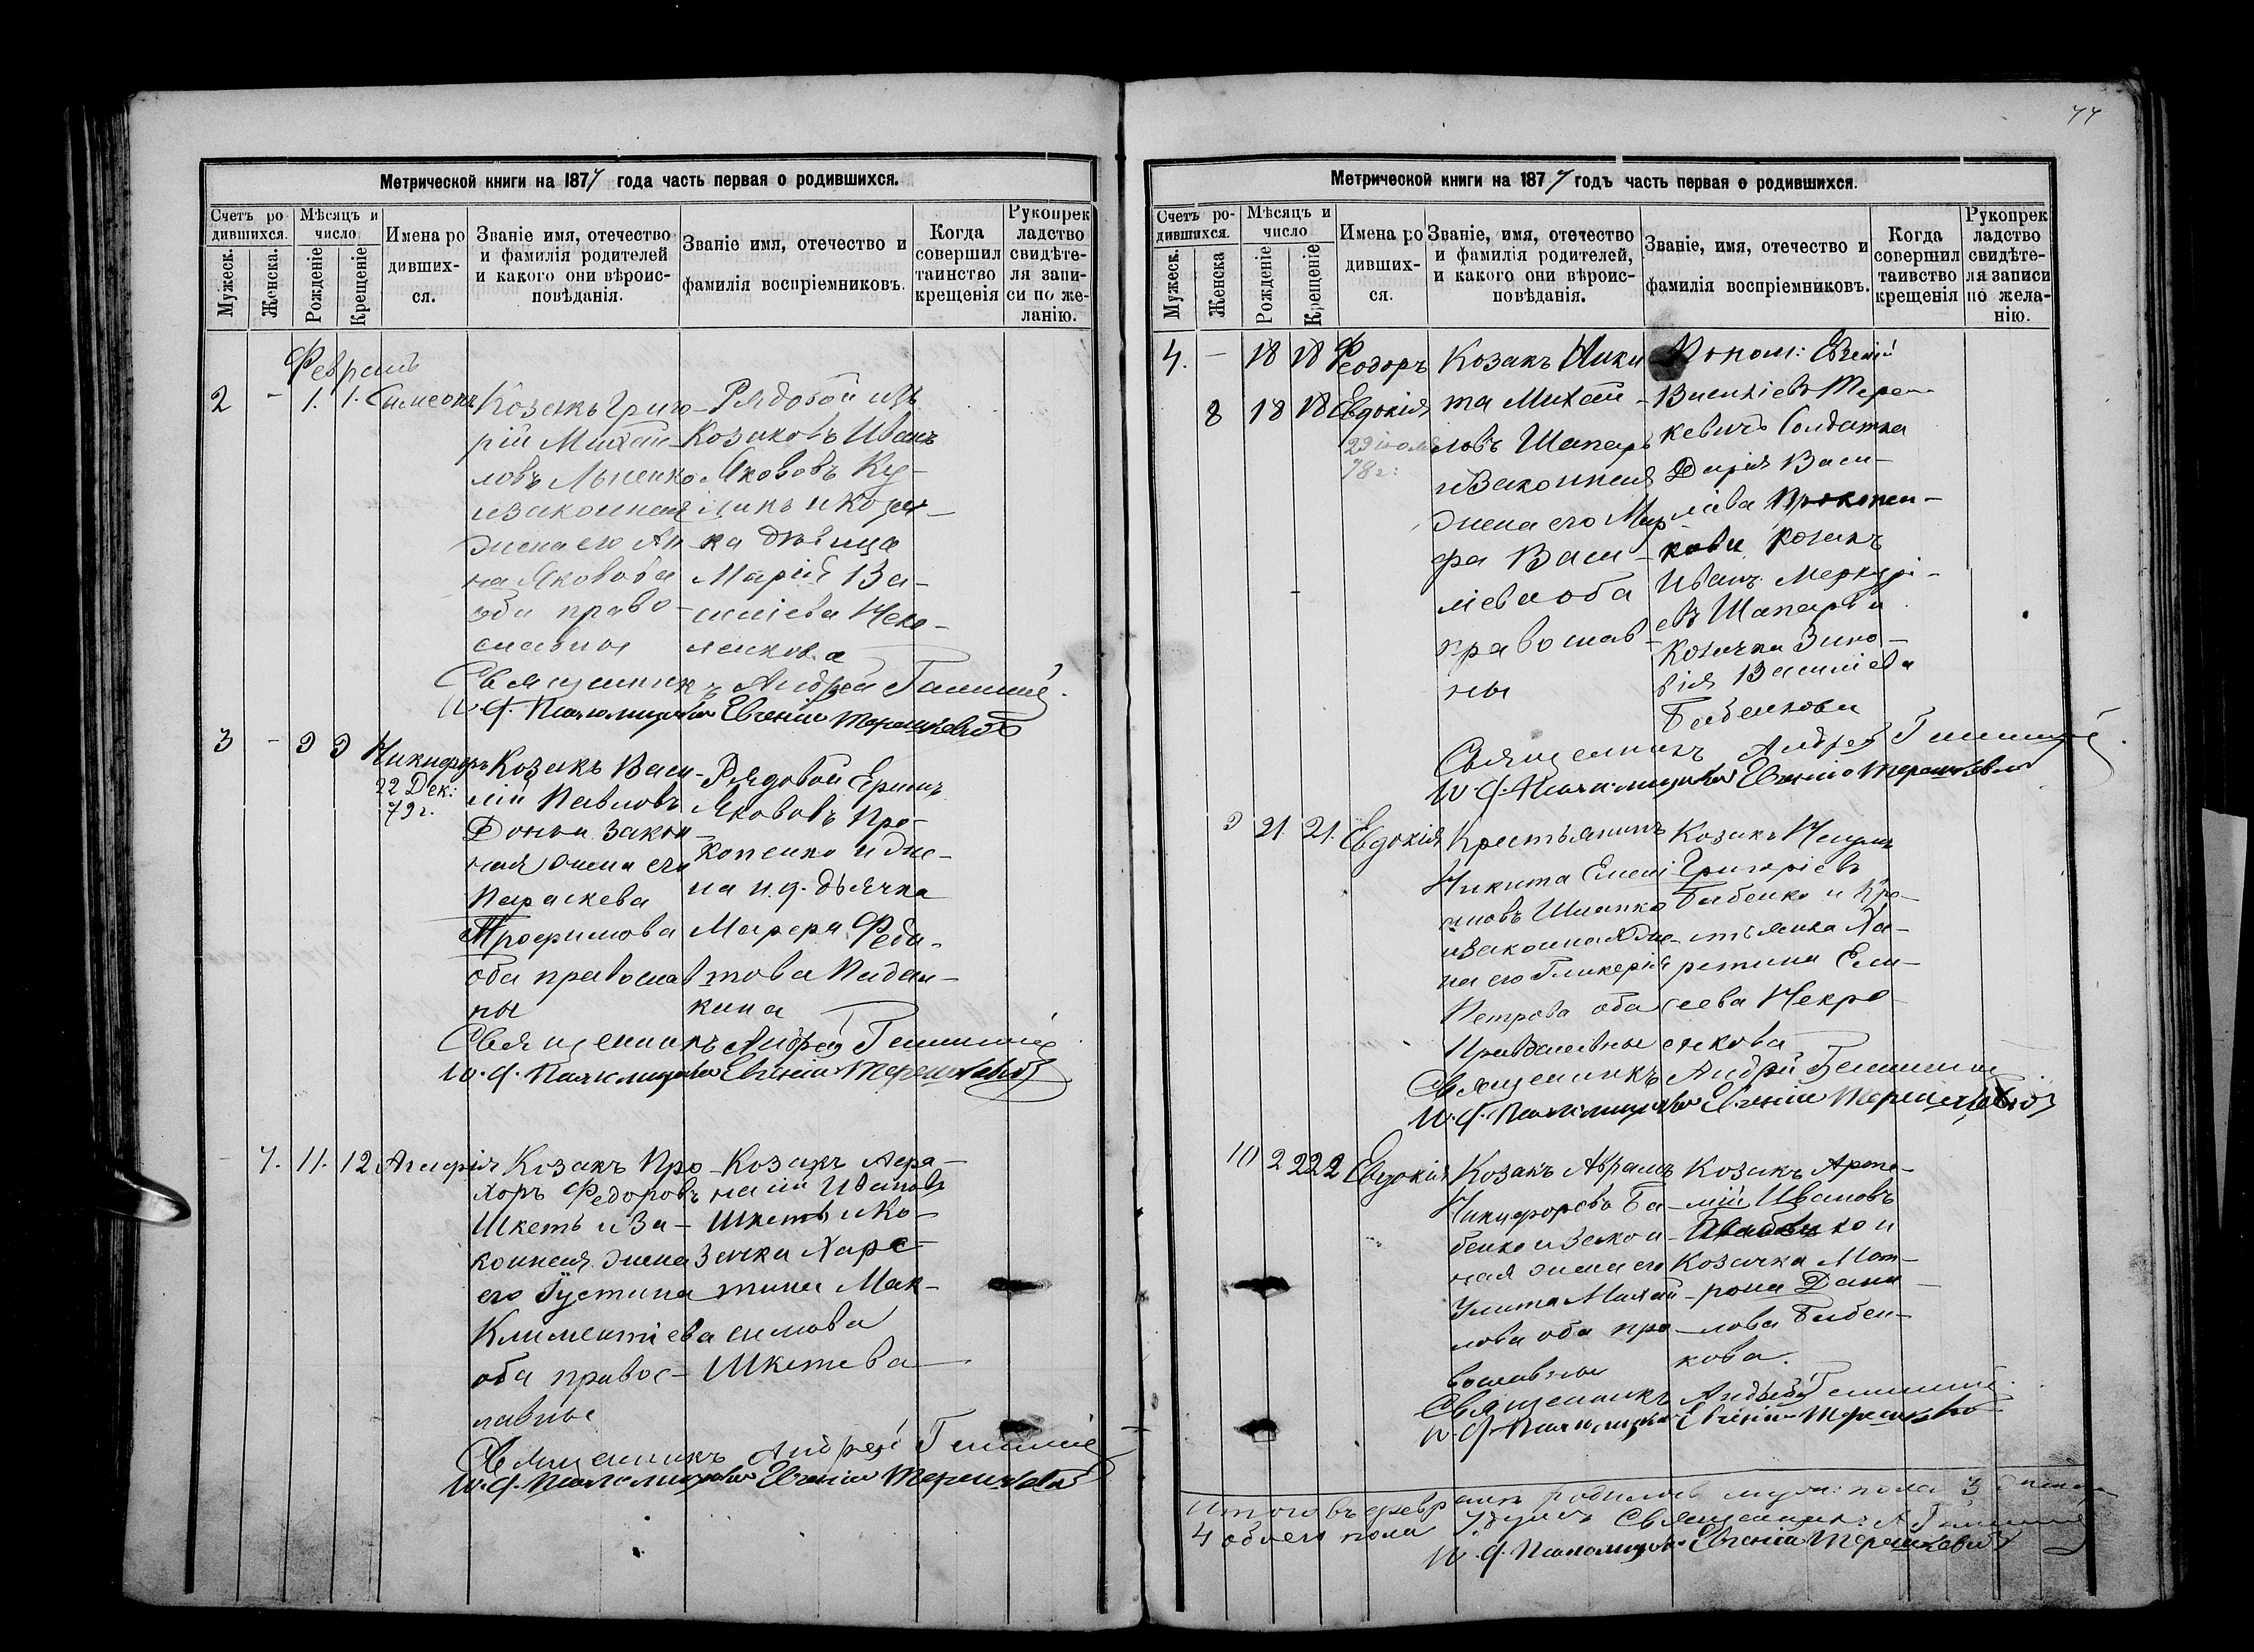 44
Метрической книги на 1877 года часть первая о родившихся.
Счетъ родившихся.
Мужеск.
Женска.
Мѣсяцъ и число
Рожденіе
Крещеніе
Имена родившихся.
Званіе имя, отечество
и фамилія родителей
и какого они вѣроис-
повѣданія.
Званіе имя, отечество и
фамилія воспріемниковъ.
Когда
совершил
таинство
крещенія
Рукоприк
ладство
свидѣте-
ля запи-
си по же-
ланію.
Февраль
2 - 1. 1. Симеонъ
Козакъ Григо-
рій Михаи-
ловъ
и законная
жена его Ан-
на Яковова
оба право-
славные
Рядовой изъ
Козаковъ Иванъ
Яkововъ Ку-
ликъ и козач-
ка дѣвица
Марія Ва-
силіева
Священникъ Андрей
И. д. Псаломщика Евгеній Терешкевичъ
3 - 9 9 Никифоръ
22 Дек:
79 г.
Козакъ Васи-
лій Павловъ
закон-
ная жена его
Параскева
Трофимова
оба православ
ны
Рядовой
Якововъ Про-
копенко и же-
на и. д. дьячка
Марфа Федо-
това
кина
Священникъ Андрей
И. д. Псаломщика Евгеній Терешкевичъ
- 7. 11. 12. Агафія
Козакъ Про-
хоръ Федоровъ
Шкеть и за-
конная жена
его Густина
Климентіева
оба правос-
лавные
Козакъ Афа-
насій Ивановъ
Шкеть и Ко-
зачка Харе-
тина Мак-
симова
Шкетева
Священникъ Андрей
И. д. Псаломщика Евгеній Терешкевичъ
Метрической книги на 1877 годъ часть первая о родившихся.
Счетъ ро-
дившихся.
Мужеск.
Женска
Мѣсяцъ и
число
Рожденіе
Крещеніе
Имена ро
дивших-
ся.
Званіе, имя, отечество
и фамилія родителей,
и какого они вѣроис-
повѣданія.
Званіе, имя, отечество и
фамилія воспріемниковъ.
Когда
совершил
таинство
крещенія
Рукоприк
ладство
свидѣте-
ля записи
по жела-
нію.
4. - 18 18 Феодоръ
8 18 18 Евдокія
78 г:
Козакъ Ники
та Михаи-
ловъ Шапарь
и законная
жена его Мар
фа Васи-
ліева оба
православ-
ны
Евгеній
Василіевъ Тереш-
кевичъ Солдатка
Дарія Васи-
ліева Прокопен-
кова козакъ
Иванъ Меркурі-
евъ Шапарь и
Козачка Зино-
вія Василіева
Бабенкова
Священникъ Андрей
И. д. Псаломщика Евгеній Терешкевичъ
9 21. 21. Евдокія
Крестьянинъ
Никита
Шлапко
и законная же-
на его Гликерія
Петрова оба
Православные
Козакъ Наумъ
Григоріевъ
Бабенко и Кре-
стьянка Ха-
ретина Ели-
сеева Некро-
енкова
Священникъ Андрей
И. д. Псаломщика Евгеній Терешкевичъ
10 22 22 Евдокія
Козакъ Абрамъ
Никифоровъ Ба-
бенко и закон-
ная жена его
Улита Михаи-
лова оба пра-
вославные
Козакъ Арте-
мій Ивановъ
Бабенко и
Козачка Мат-
рона Дани-
лова Бабен-
кова.
Священникъ Андрей
И. д. Псаломщика Евгеній Терешкевичъ
Итого въ февралѣ родилось муж: пола 3 женск
4 обоего пола 7. душъ Священникъ А
И. д. Псаломщика Евгеній Терешкевичъ